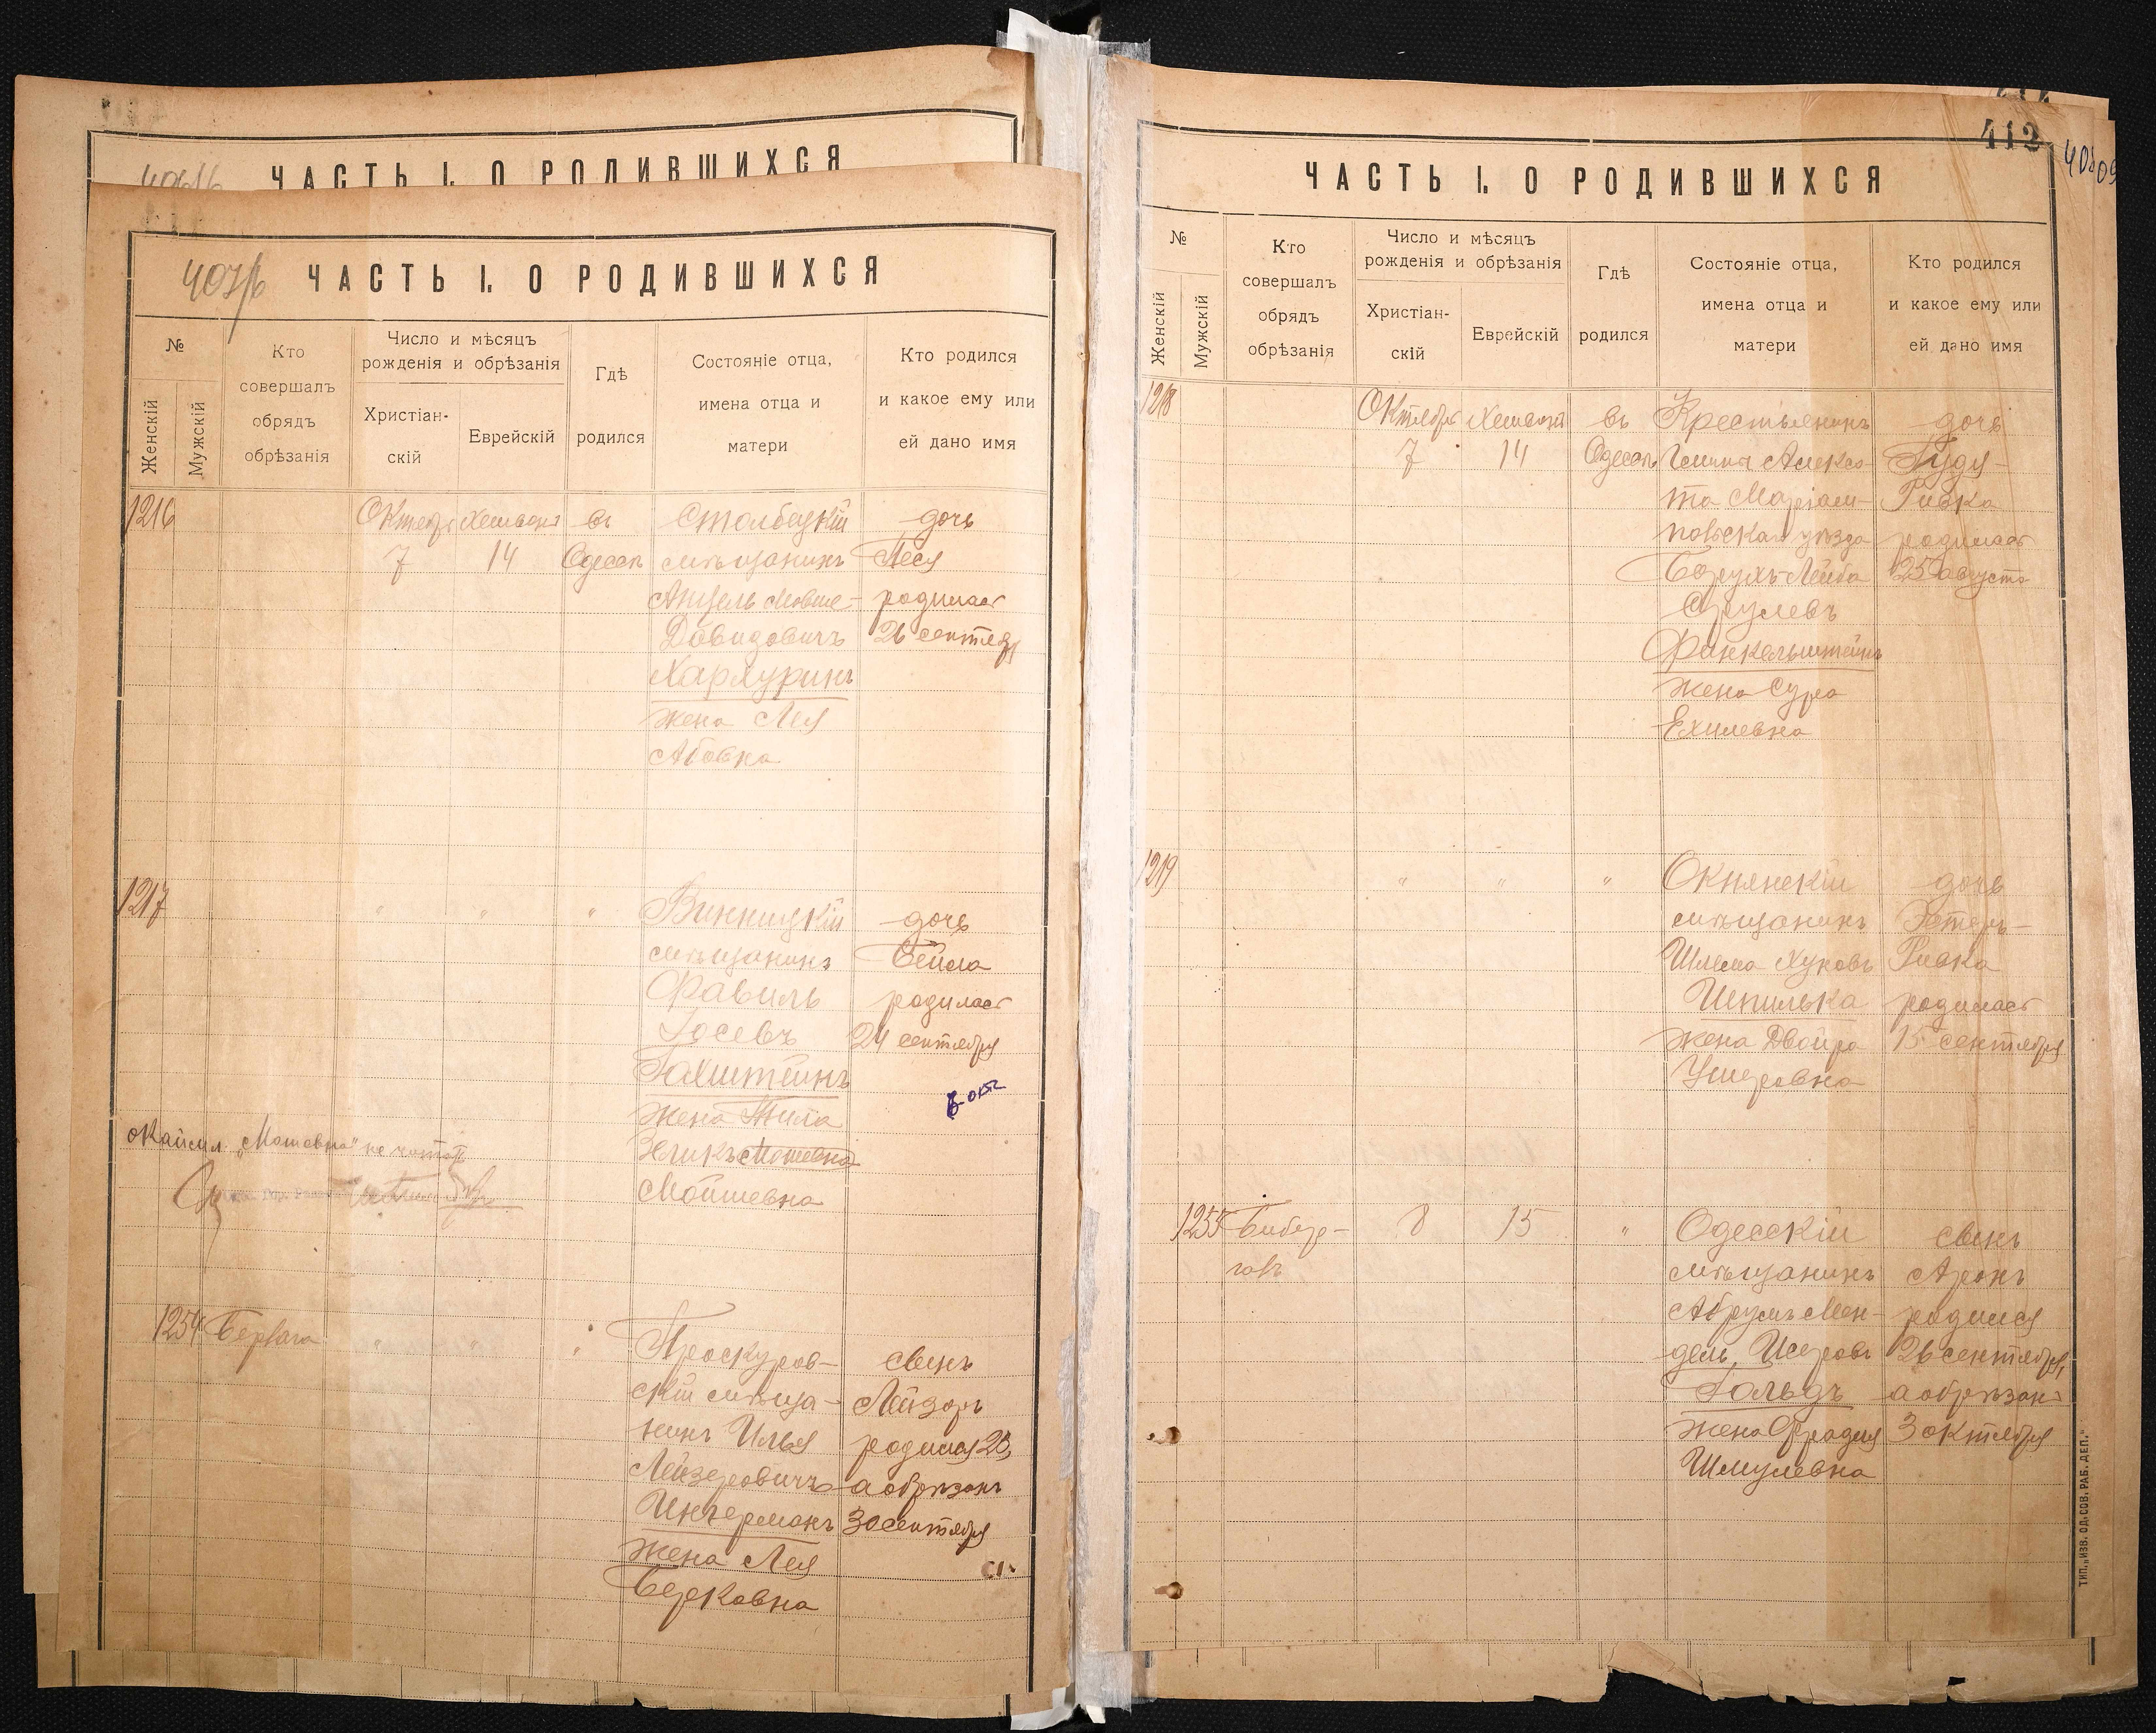 ЧАСТЬ I. О РОДИВШИХСЯ
407/б
ЧАСТЬ I. О РОДИВШИХСЯ
№
Женскій
Мужскій
Кто
совершалъ
обрядъ
обрѣзанія
Число и мѣсяцъ
рожденія и обрѣзанія
Христіан-
скій
Еврейскій
Гдѣ
родился
Состояніе отца,
имена отца и
матери
Кто родился
и какое ему или
ей дано имя
1216
Октябрь
7
Хешвонъ
14
въ
Одессѣ
Столбецкій
мѣщанинъ
Анцель Мовше-
Давидовичъ
Хархуринъ
жена Лея
Абовна
дочь
Песя
родилась
26 сентября
1217
"
"
"
Винницкій
мѣщанинъ
Фавиль
Іосевъ
Гохштейнъ
жена Тила
Зеликъ Мошевна
Мойшевна
дочь
Бейла
родилась
24 сентября
"Мошевна" не читать
1254
"
"
"
Проскуров-
скій мѣща-
нинъ Илья
Лейзеровичъ
Ингерманъ
жена Лея
Берковна
сынъ
Лейзеръ
родился 23,
а обрѣзанъ
30 сентября
412
ЧАСТЬ I. О РОДИВШИХСЯ
№
Женскій
Мужскій
Кто
совершалъ
обрядъ
обрѣзанія
Число и мѣсяцъ
рожденія и обрѣзанія
Христіан-
скій
Еврейскій
Гдѣ
родился
Состояніе отца,
имена отца и
матери
Кто родился
и какое ему или
ей дано имя
1218
Октябрь
7
Хешвонъ
14
въ
Одессѣ
Крестьянинъ
Маріам-
польскаго уѣзда
Борухъ-Лейба
Срулевъ
Финкельштейнъ
жена Сура
Ехилевна
дочь
Гудя-
Ривка
родилась
25 августа
1219
"
"
"
Окнянскій
мѣщанинъ
Шлема Хуновъ
Шпилька
жена Двойра
Ушеровна
дочь
Эстеръ-
Ривка
родилась
15 сентября
1255
8
15
"
Одесскій
мѣщанинъ
Абрумъ Мен-
дель Исеровъ
Гольдъ
жена Фрадия
Шмулевна
сынъ
Аронъ
родился
26 сентября,
а обрѣзанъ
3 октября
ТИП. „ИЗВ. ОД. СОВ. РАБ. ДЕП."